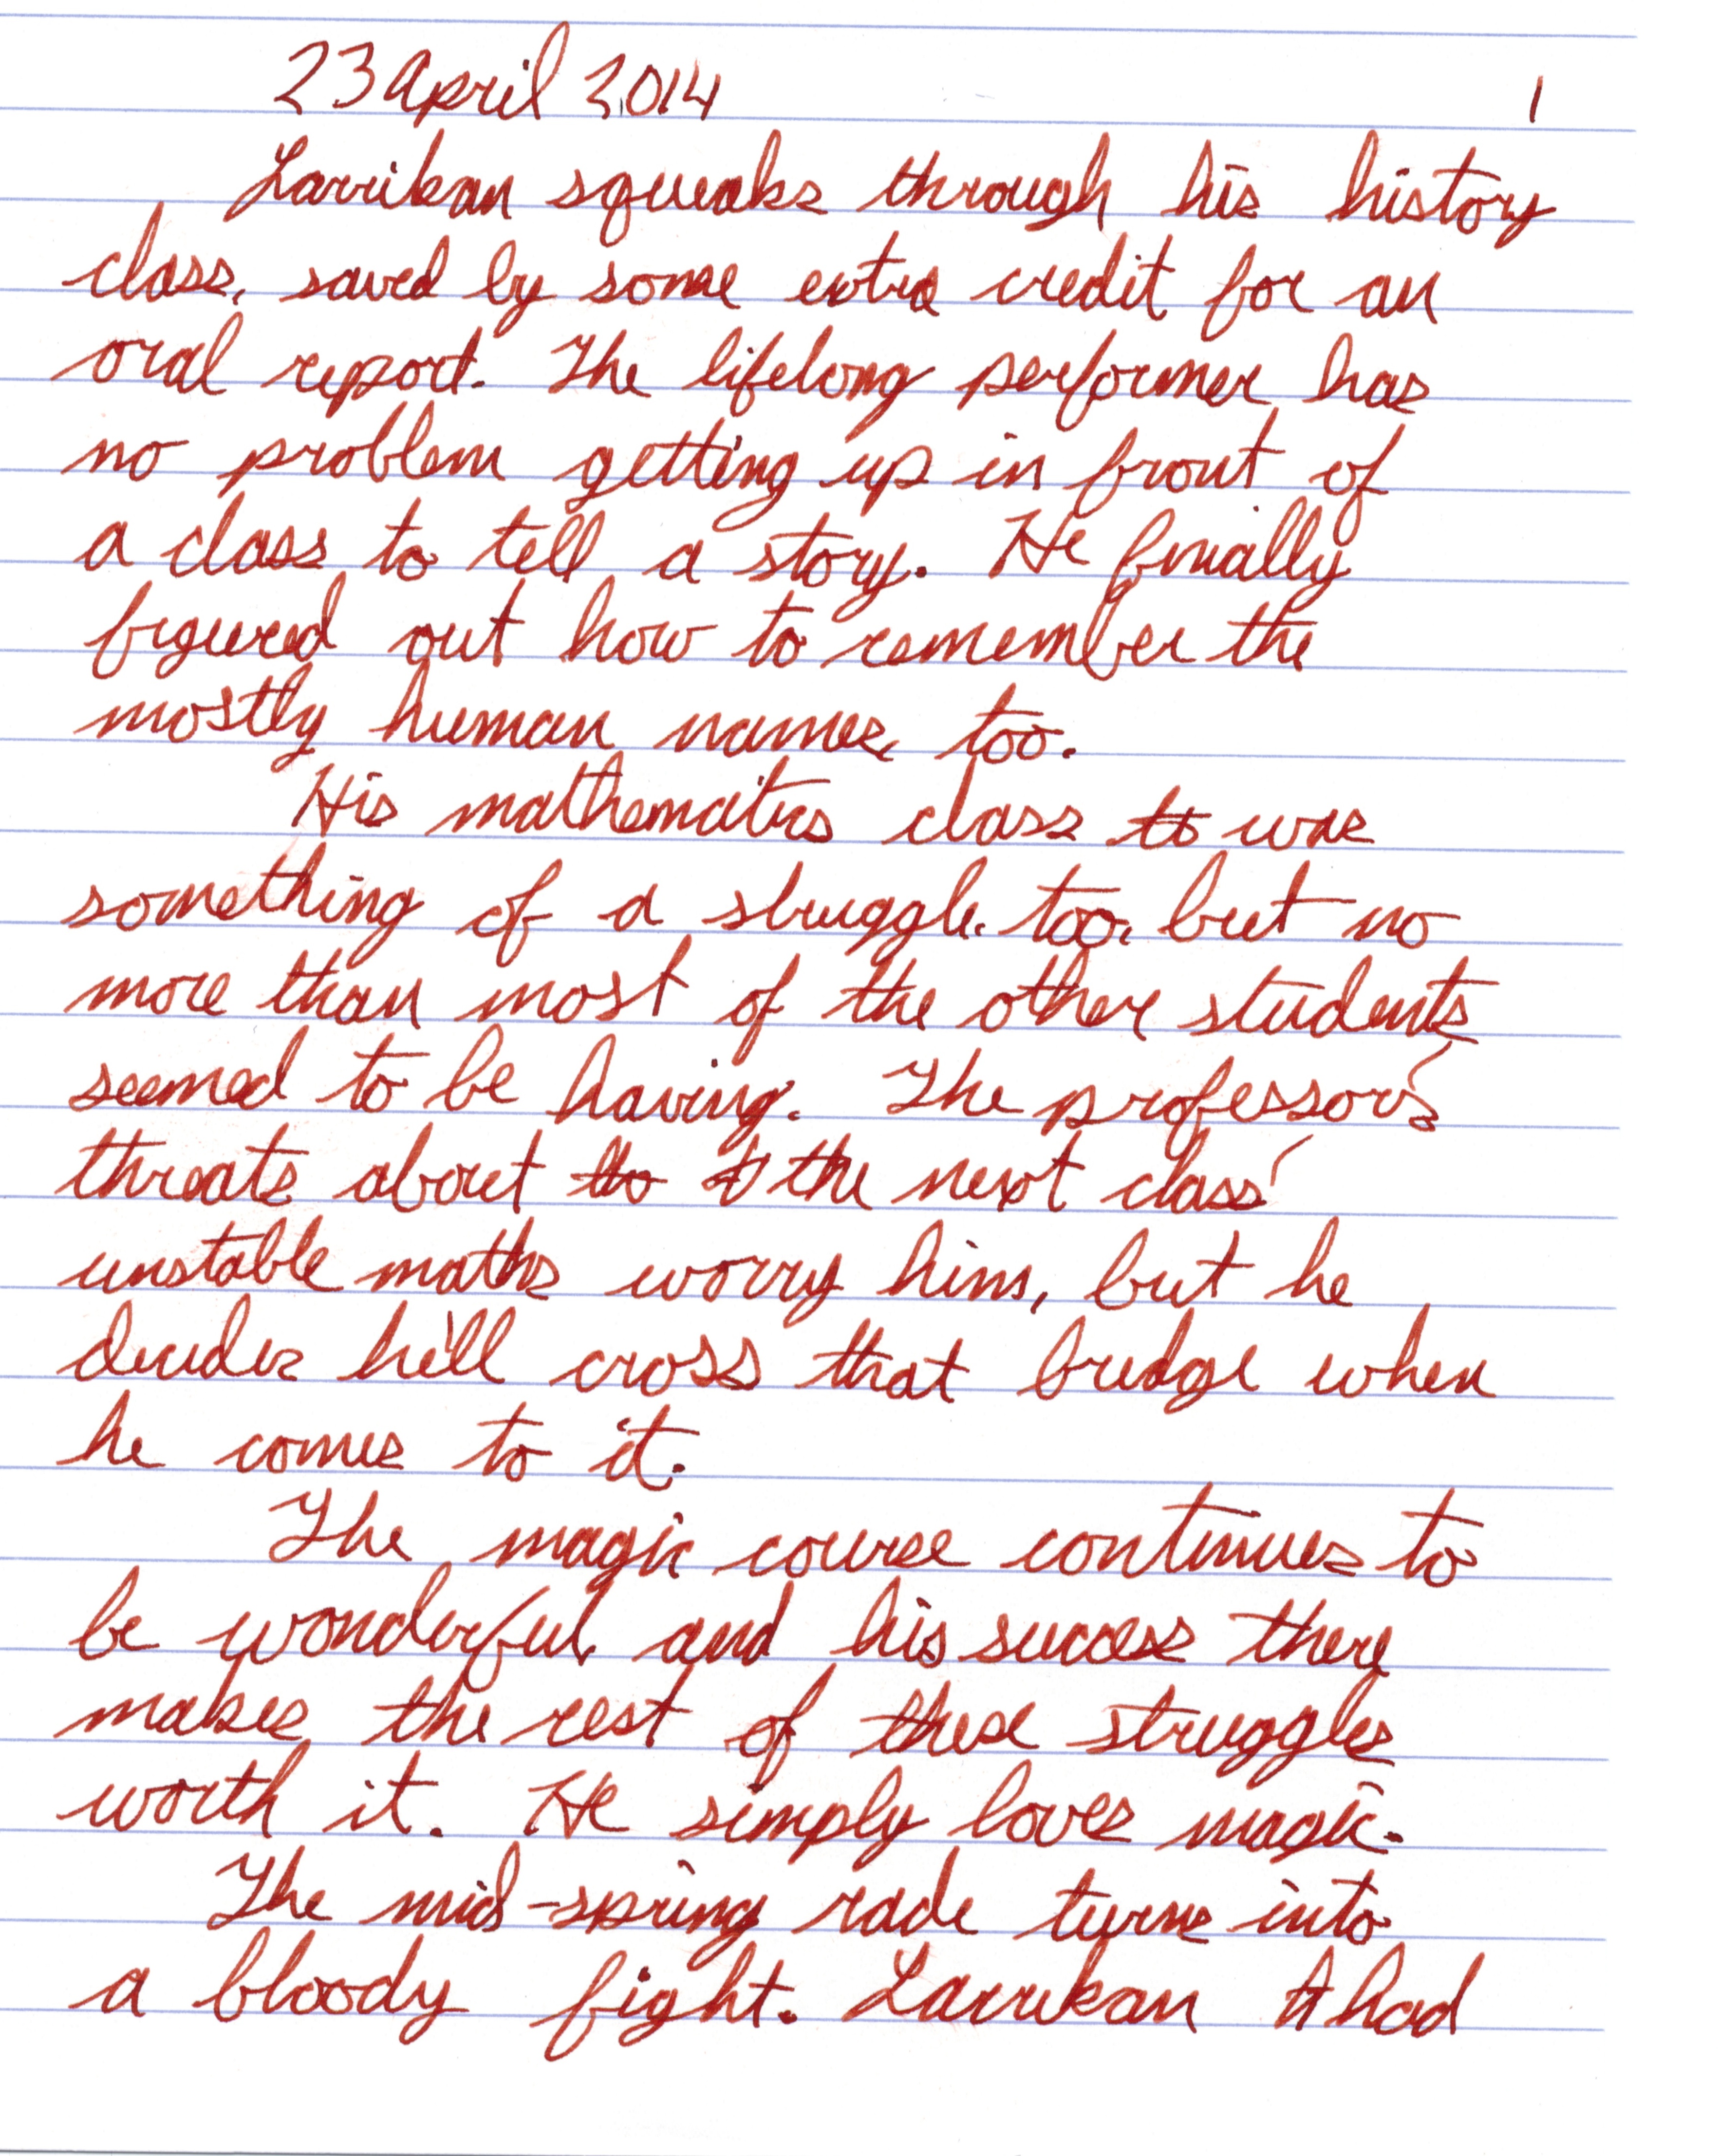 23 April 2014 1
Larrikan squeaks through his history
class, saved by some extra credit for an
oral report. The lifelong performer has
no problem getting up in front of
a class to tell a story. He finally
figured out how to remember the
mostly human names too.
His mathematics class to was
something of a struggle, too, but no
more than most of the other students
seemed to be having. The professor's
threats about the t the next class'
unstable maths worry him, but he
decides he'll cross that bridge when
he comes to it.
The magic course continues to
be wonderful and his success there
makes the rest of these struggles
worth it. He simply loves magic.
The mid-spring rade turns into
a bloody fight. Larrikan t had